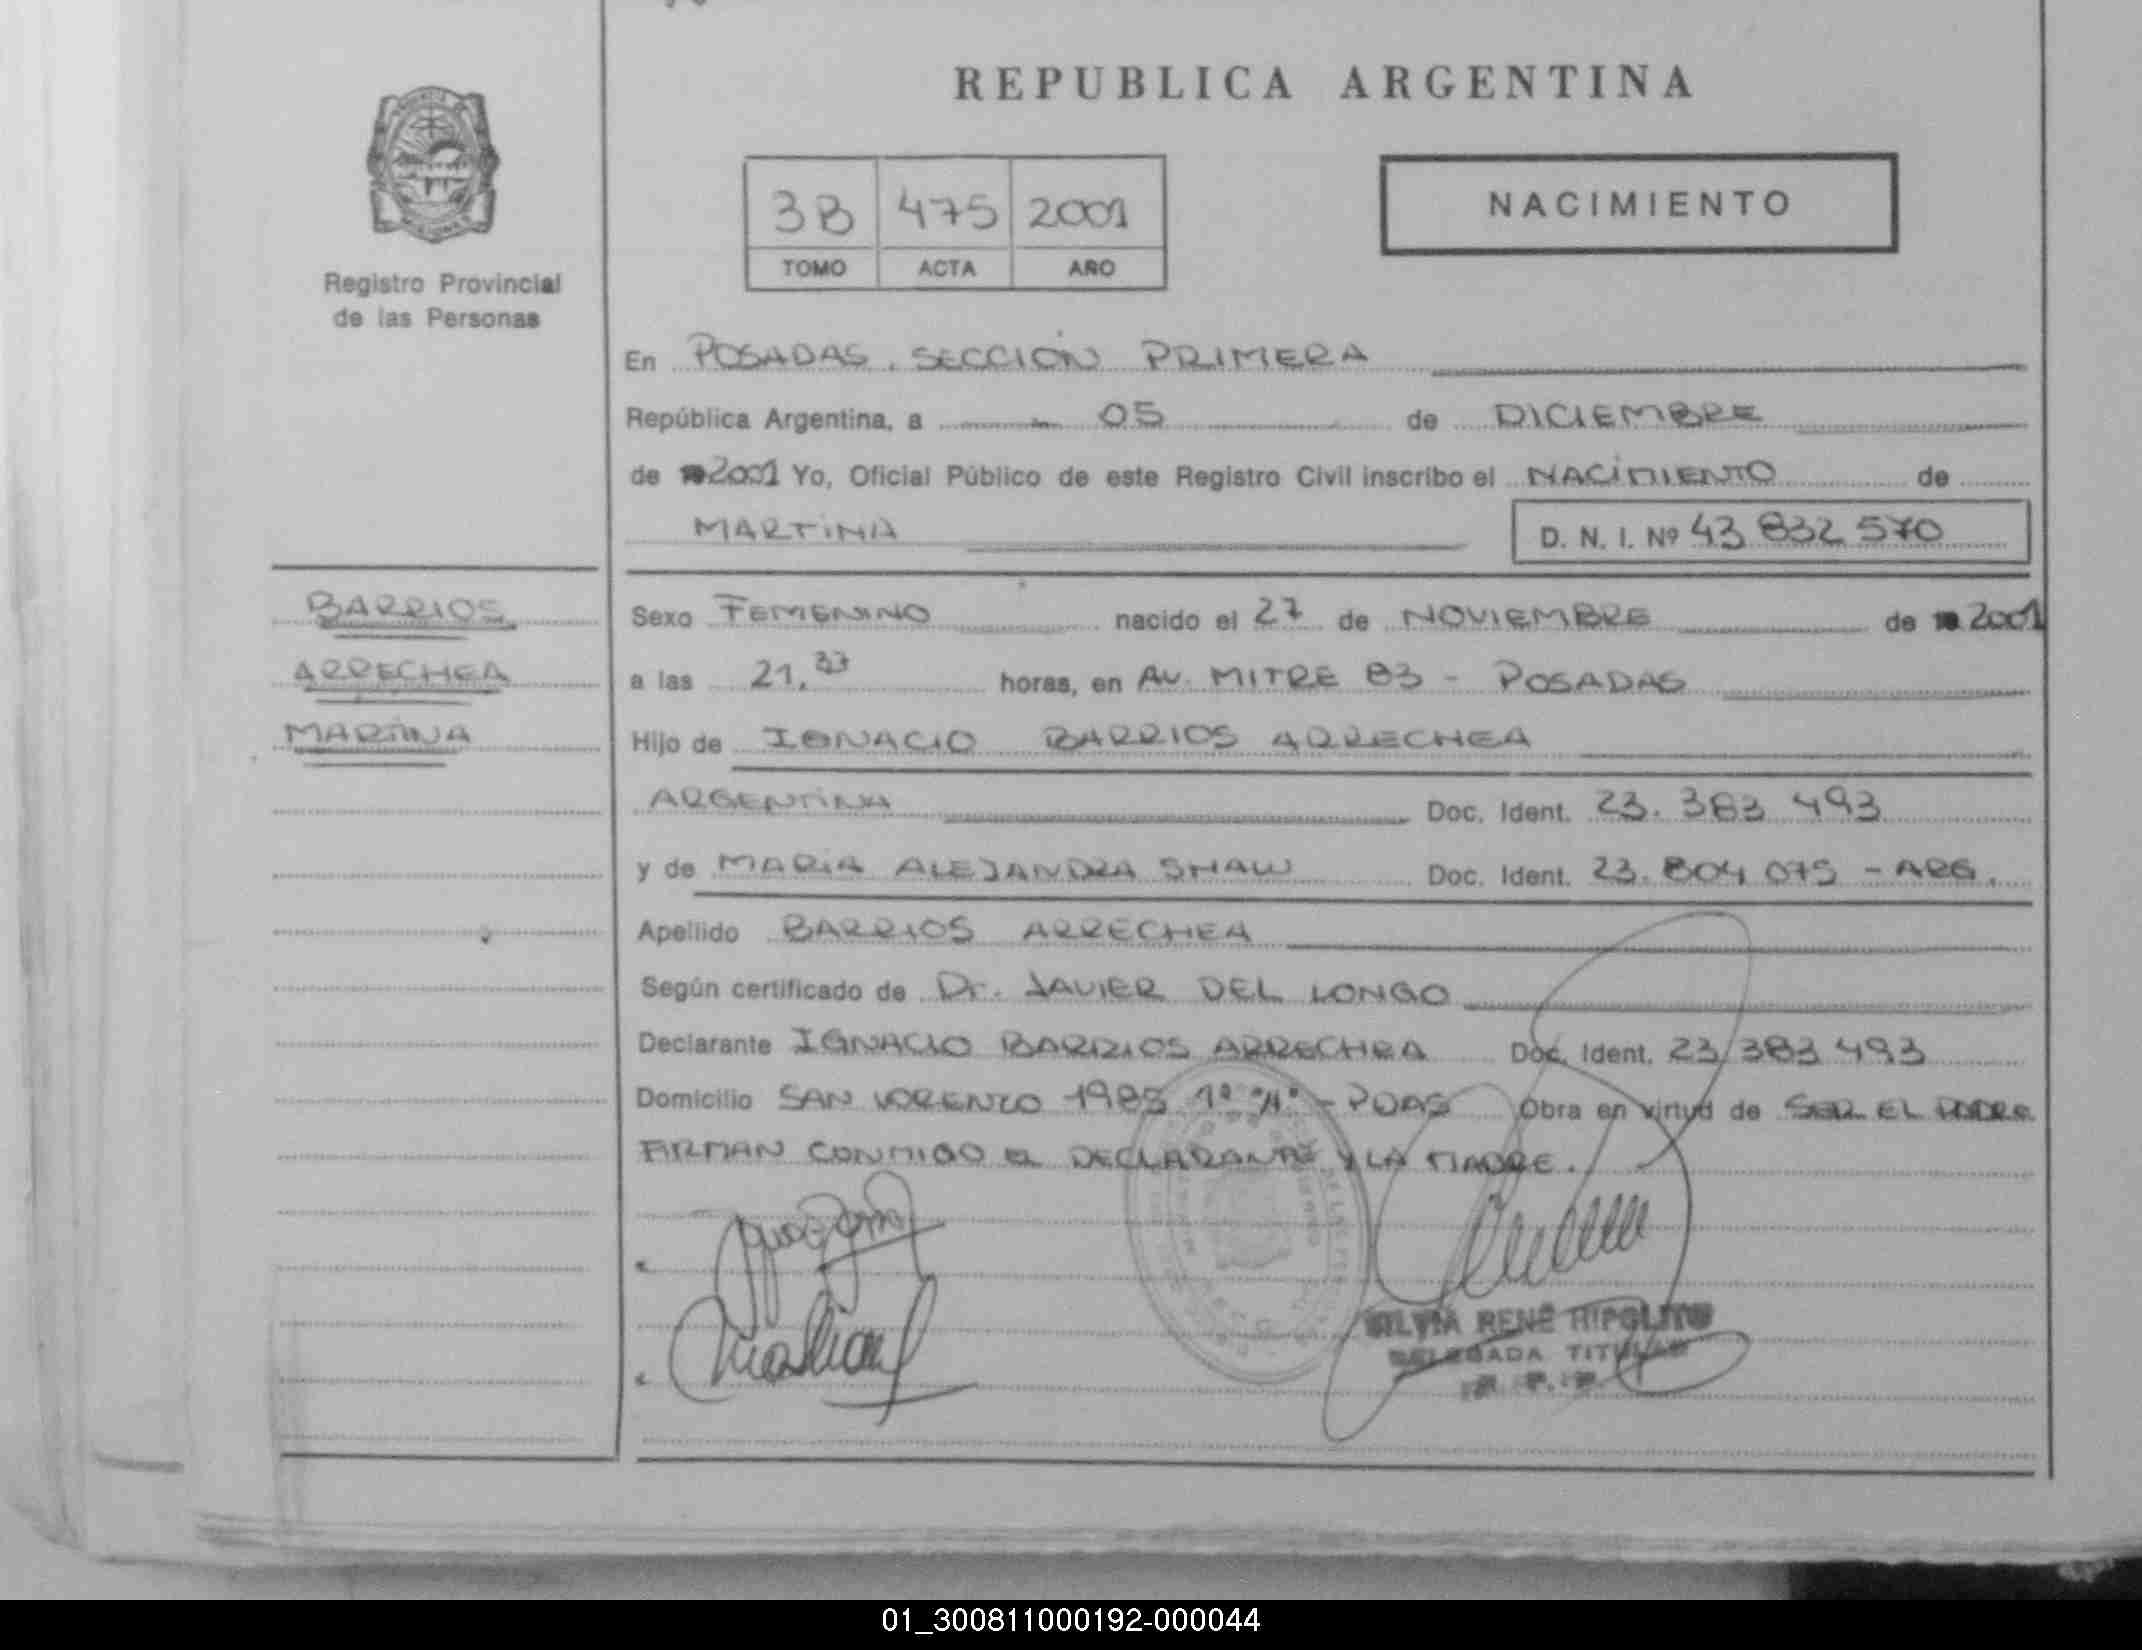 REPUBLICA ARGENTINA
3B 475 2001
TOMO ACTA AÑO
NACIMIENTO
Registro Provincial
de las Personas
En POSADAS, SECCIÓN PRIMERA
República Argentina, a 05 de DICIEMBRE
de 2001 Yo, Oficial Público de este Registro Civil inscribo el NACIMIENTO de
MARTINA D. N. I. Nº 43 832 570
BARRIOS
ARRECHEA
MARTINA
Sexo FEMENINO nacido el 27 de NOVIEMBRE de 2001
a las 21,33 horas, en AV. MITRE 83 - POSADAS
Hijo de IGNACIO BARRIOS ARRECHEA
ARGENTINA Doc. Ident. 23.383 493
y de MARIA ALEJANDRA SHAW Doc. Ident. 23.804 075 - ARG.
Apellido BARRIOS ARRECHEA
Según certificado de Dr. JAVIER DEL LONGO
Declarante IGNACIO BARRIOS ARRECHEA Doc. Ident. 23 383 493
Domicilio SAN LORENZO 1985 1º "A" - PDAS Obra en virtud de SER EL PADRE
FIRMAN CONMIGO EL DECLARANTE Y LA MADRE.
SILVIA RENÉ HIPOLITO
DELEGADA TITULAR
R. P. P.
01_300811000192-000044